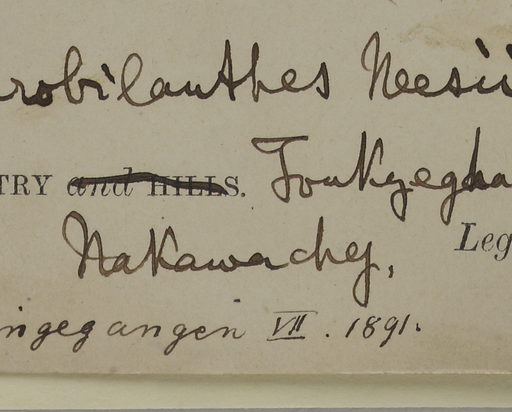 robilanthes Neesii
TRY and HILLS. Toukyegha
Nakawachy,
Leg
ngegangen VII. 1891.